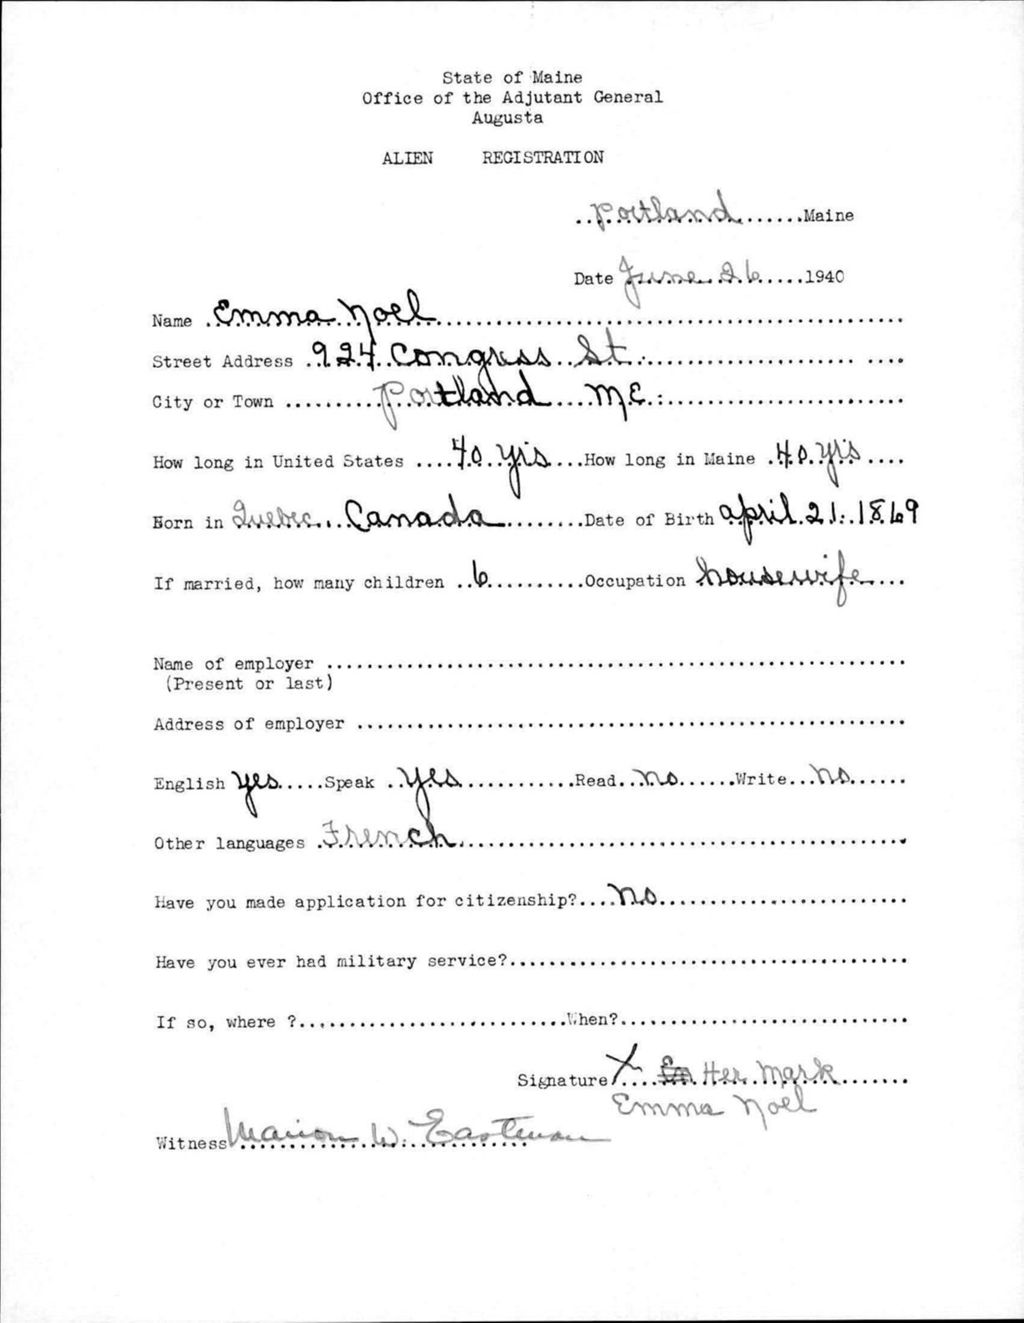 State of Maine
Office of the Adjutant General
Augusta
ALIEN REGISTRATION
Portland Maine
Date June 26 1940
Name Emma Noel
Street Address 924 Congress St.
City or Town Portland ME.
How long in United States 40 yrs How long in Maine 40 yrs
Born in Quebec Canada Date of Birth april 21. 1869
If married, how many children 6 Occupation housewife
Name of employer
(Present or last)
Address of employer
English yes Speak yes Read no Write no
Other languages French
Have you made application for citizenship? no
Have you ever had military service?
If so, where ? When?
Signature X Em Her Mark
Emma Noel
Witness Marion W. Eastman